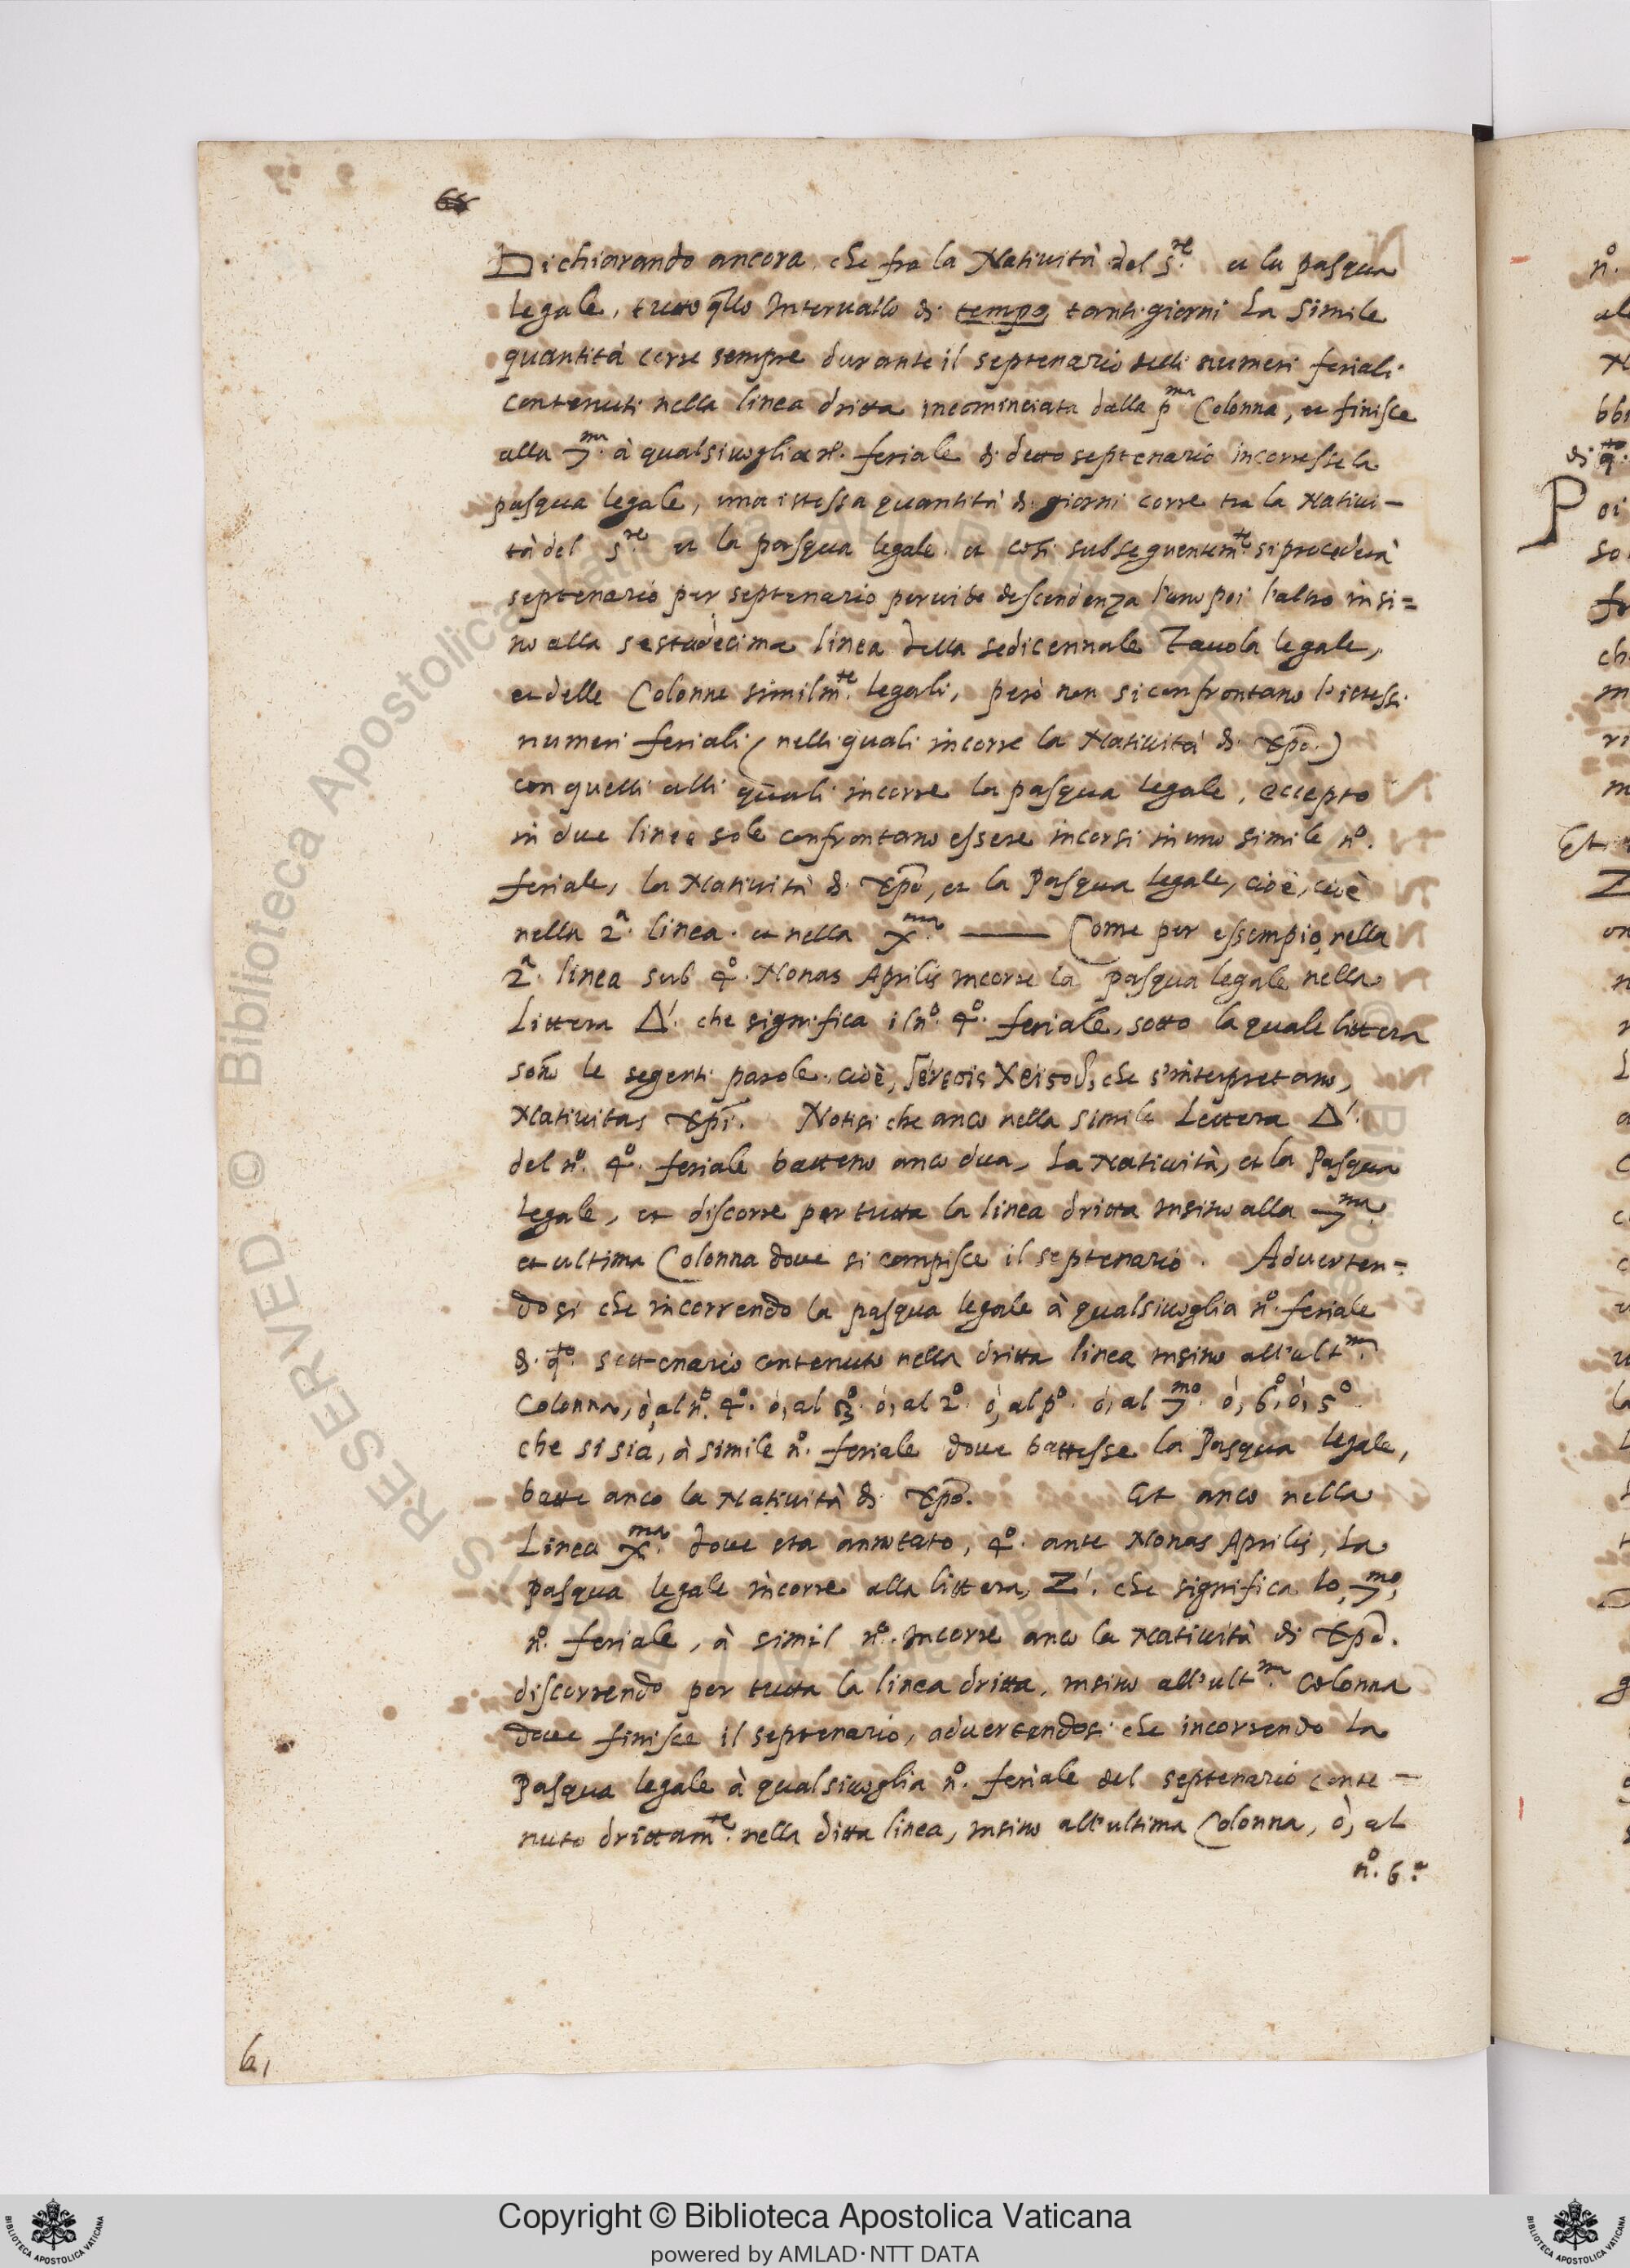 65
Dichiarando ancora, che fra la Natiuità del s.re et la pasqua
legale, tutto q̃llo Interuallo di tempo, tanti giorni La simile
quantità corre sempre durante il septenario delli numeri feriali
contenuti nella linea dritta incominciata dalla p.ma Colonna, et finisce
alla 7.ma à qualsiuoglia n.o feriale di detto septenario incorresse la
pasqua legale, una istessa quantità di giorni corre tra la Natiui-
tà del s.re et la pasqua legale et così subsequentem.te si procederà
septenario per septenario per descendenza l'uno poi l'altro insi=
no alla sestadecima linea della sedicennale Tauola legale,
et delle Colonne similm.te legali, però non si confrontano l'istessi
numeri feriali (nelli quali incorre la Natiuità di Xp̃o.)
con quelli alli quali incorre la pasqua legale, eccepto
in due linee sole confrontano essere incorsi in uno simile n.o
feriale, la Natiuità di Xp̃o, et la Pasqua legale, cioè, cioè
nella 2.a linea et nella X.ma —— Come per essempio, nella
2.a linea sub 4.o Nonas Aprilis incorre la pasqua legale nella
Littera Δ'. che significa il n.o 4.o feriale, sotto la quale littera
sono le segenti parole cioè, che s'interpretano,
Natiuitas Xp̃i. Notisi che anco nella simile Lettera Δ'.
del n.o 4.o feriale batteno anco dua, La Natiuità, et la Pasqua
legale, et discorre per tutta la linea dritta insino alla 7.ma
et ultima Colonna doue si compisce il septenario. Aduerten=
dosi che incorrendo la pasqua legale à qualsiuoglia n.o feriale
di q.to settenario contenuto nella dritta linea insino all'ult.ma
Colonna, ò, al n.o 4.o ò, al 3.o ò, al 2.o ò, al p.o ò, al 7.mo ò, 6.o ò, 5.o
che si sia, à simile n.o feriale doue battesse la Pasqua legale,
batte anco la Natiuità di Xp̃o. Et anco nella
Linea X.ma doue sta annotato, 4.o ante Nonas Aprilis, La
pasqua legale incorre alla littera, Z'. che significa lo, 7.mo,
n.o feriale, à simil n.o incorre anco la Natiuità di Xp̃o.
discorrendo per tutta la linea dritta, insino all'ult.ma Colonna
doue finisce il septenario, aduertendosi che incorrendo la
Pasqua legale à qualsiuoglia n.o feriale del septenario conte-
nuto drittam.te nella ditta linea, insino all'ultima Colonna, ò, al
n.o 6.o
© Biblioteca Apostolica Vaticana
Copyright © Biblioteca Apostolica Vaticana
powered by AMLAD·NTT DATA